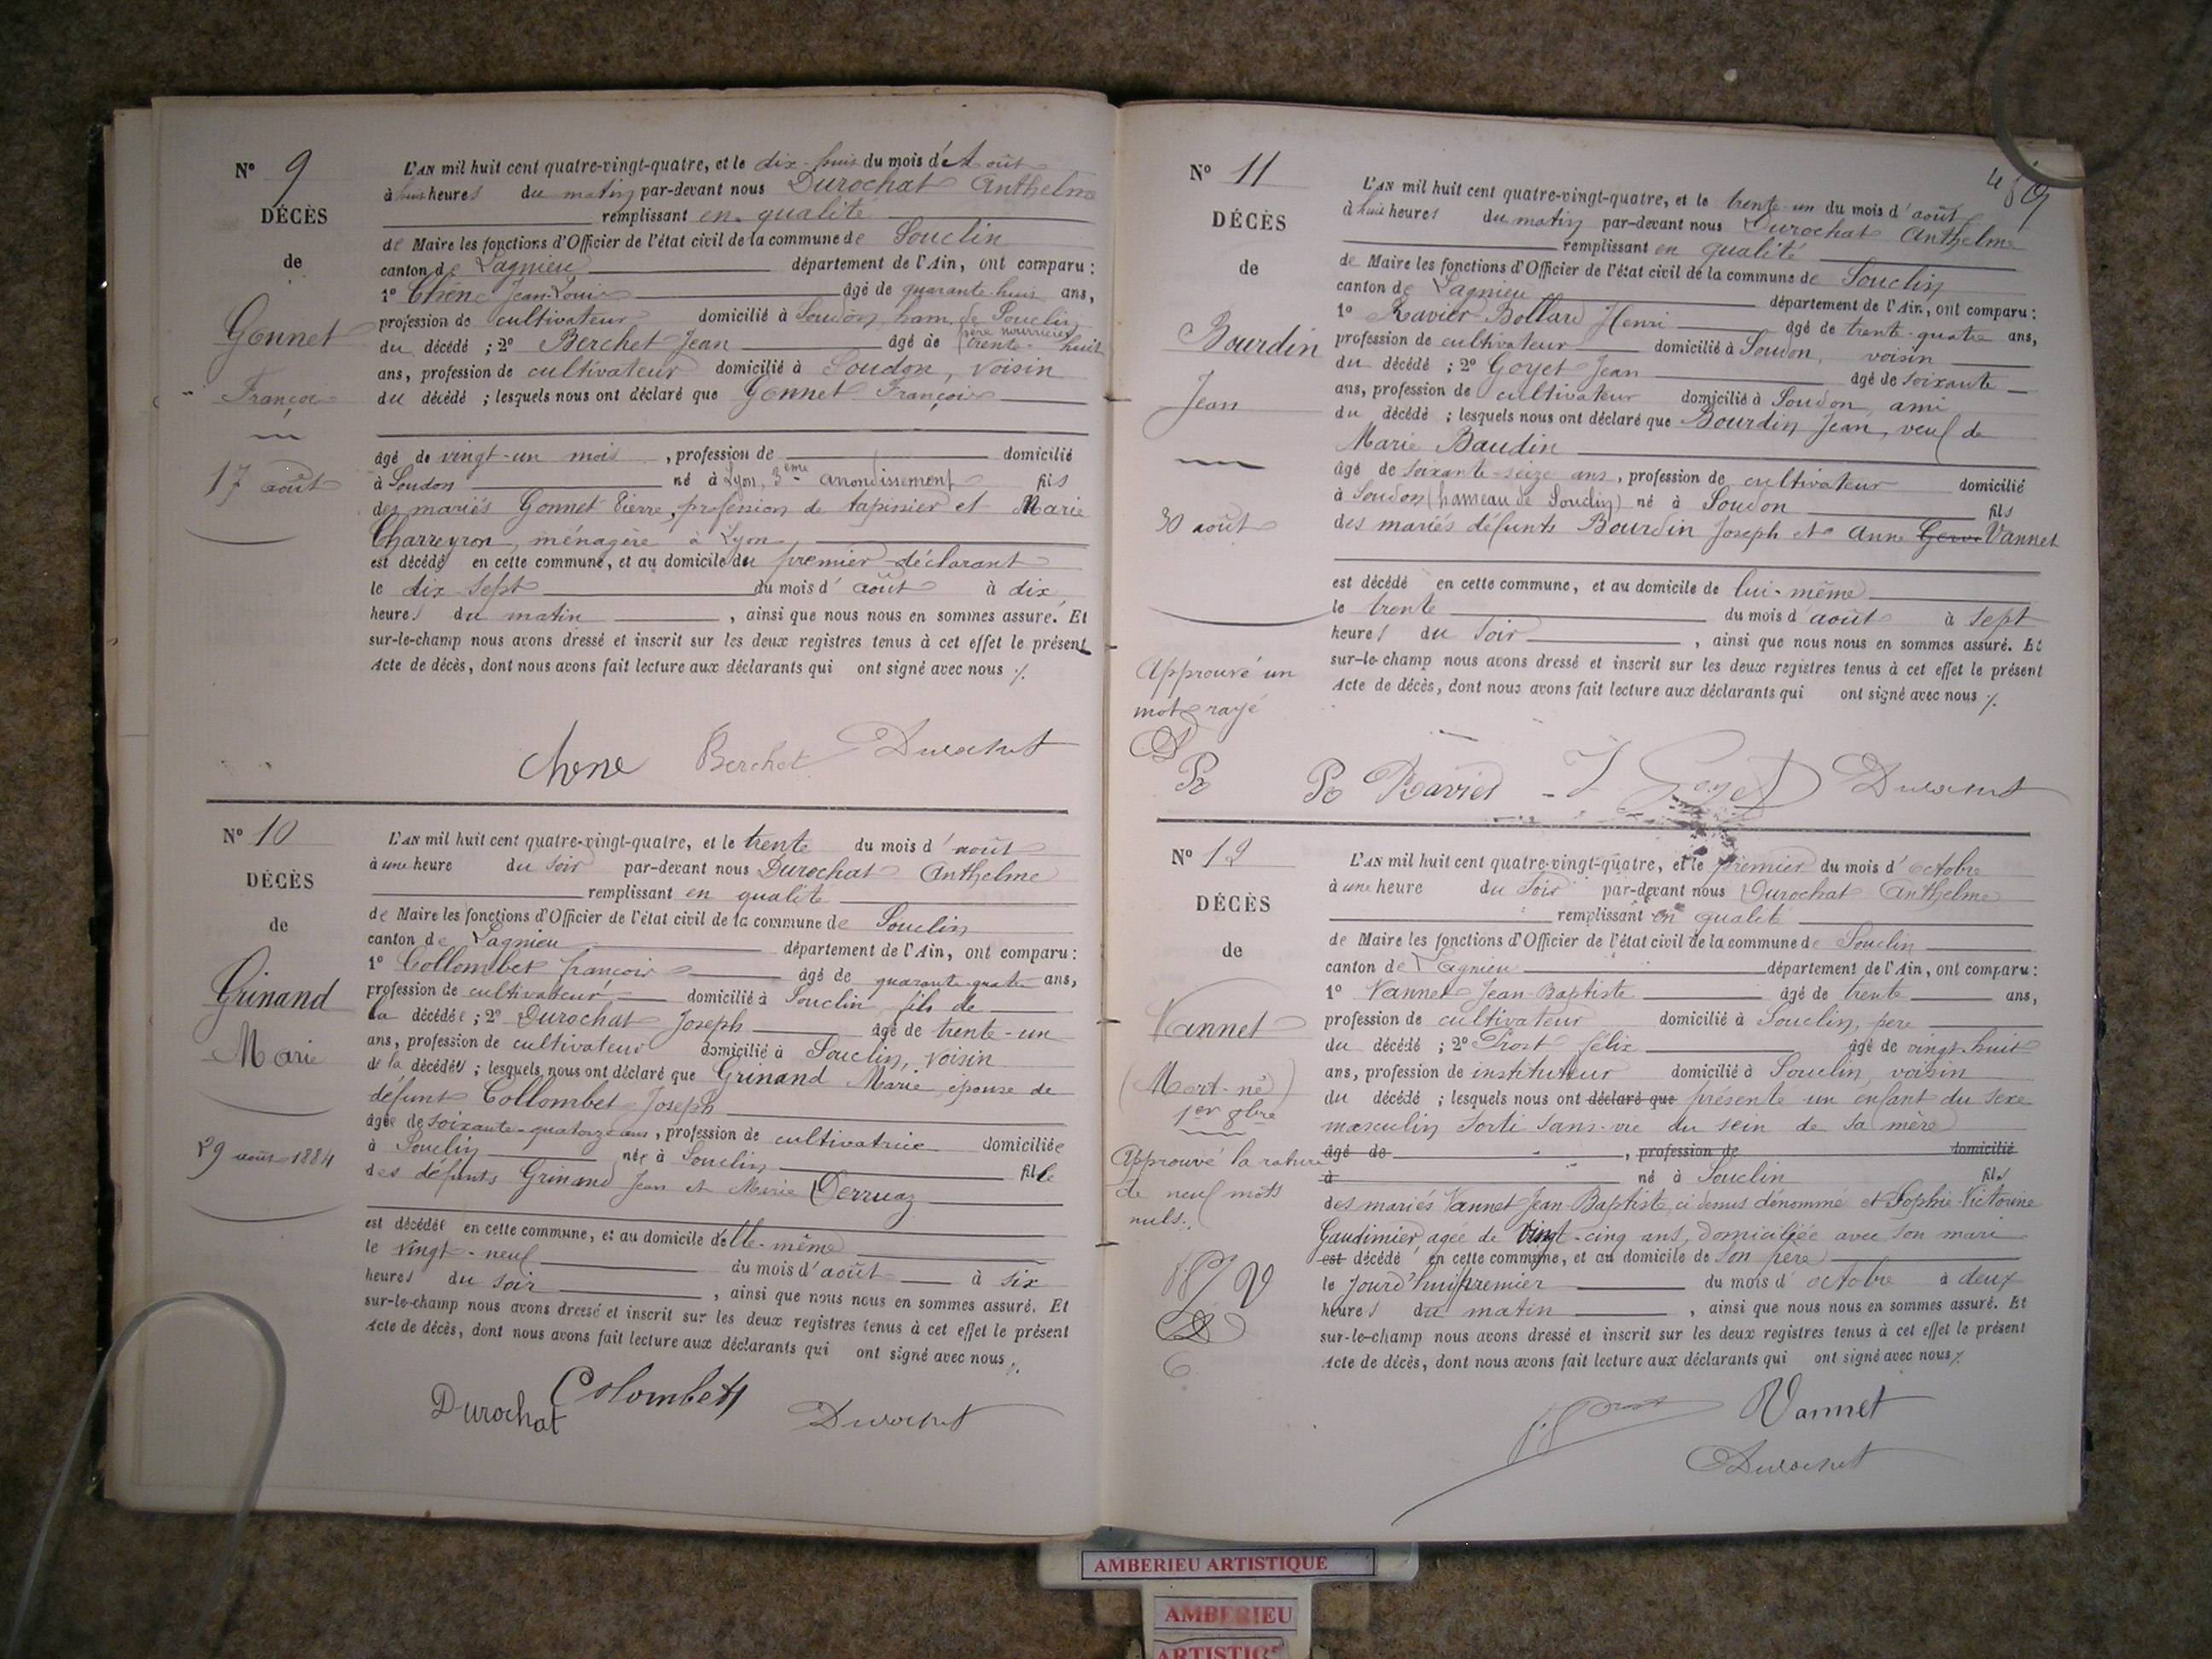 N° 9
DÉCÈS
de
Gonnet
François
17 août
L'AN mil huit cent quatre-vingt-quatre, et le dix-huit du mois d'Août
à huit heures du matin par-devant nous Durochat Anthelme
remplissant en qualité
de Maire les fonctions d'Officier de l'état civil de la commune de Souclin
canton de Lagnieu département de l'Ain, ont comparu :
1° Chêne Jean-Louis âgé de quarante-huit ans,
profession de cultivateur domicilié à Soudon, ham. de Souclin
père nourricier
du décédé ; 2° Berchet Jean âgé de trente-huit
ans, profession de cultivateur domicilié à Soudon, voisin
du décédé ; lesquels nous ont déclaré que Gonnet François
âgé de vingt-un mois, profession de domicilié
à Soudon né à Lyon, 3ème arrondissement fils
des mariés Gonnet Pierre, profession de tapissier et Marie
Charreyron, ménagère à Lyon
est décédé en cette commune, et au domicile du premier déclarant
le dix-sept du mois d'août à dix
heures du matin, ainsi que nous nous en sommes assuré. Et
sur-le-champ nous avons dressé et inscrit sur les deux registres tenus à cet effet le présent
Acte de décès, dont nous avons fait lecture aux déclarants qui ont signé avec nous ./.
Chene Berchet Durochat
N° 10
DÉCÈS
de
Grinand
Marie
29 août 1884
L'AN mil huit cent quatre-vingt-quatre, et le trente du mois d'août
à une heure du soir par-devant nous Durochat Anthelme
remplissant en qualité
de Maire les fonctions d'Officier de l'état civil de la commune de Souclin
canton de Lagnieu département de l'Ain, ont comparu :
1° Collombet françois âgé de quarante-quatre ans,
profession de cultivateur domicilié à Souclin fils de
la décédée ; 2° Durochat Joseph âgé de trente-un
ans, profession de cultivateur domicilié à Souclin, voisin
de la décédée ; lesquels nous ont déclaré que Grinand Marie, épouse de
défunt Collombet Joseph
âgée de soixante-quatorze ans, profession de cultivatrice domiciliée
à Souclin née à Souclin fille
des défunts Grinand Jean et Marie Derruaz
est décédée en cette commune, et au domicile d'elle-même
le vingt-neuf du mois d'août à six
heures du soir, ainsi que nous nous en sommes assuré. Et
sur-le-champ nous avons dressé et inscrit sur les deux registres tenus à cet effet le présent
Acte de décès, dont nous avons fait lecture aux déclarants qui ont signé avec nous ./.
Durochat Colombet Durochat
N° 11
DÉCÈS
de
Bourdin
Jean
30 août
Approuvé un
mot rayé
L'AN mil huit cent quatre-vingt-quatre, et le trente-un du mois d'août
à huit heures du matin par-devant nous Durochat Anthelme
remplissant en qualité
de Maire les fonctions d'Officier de l'état civil de la commune de Souclin
canton de Lagnieu département de l'Ain, ont comparu :
1° Ravier-Bollard Henri âgé de trente-quatre ans,
profession de cultivateur domicilié à Soudon, voisin
du décédé ; 2° Goyet Jean âgé de soixante
ans, profession de cultivateur domicilié à Soudon, ami
du décédé ; lesquels nous ont déclaré que Bourdin Jean, veuf de
Marie Baudin
âgé de soixante-seize ans, profession de cultivateur domicilié
à Soudon (hameau de Souclin) né à Soudon fils
des mariés défunts Bourdin Joseph et Anne Vannet
est décédé en cette commune, et au domicile de lui-même
le trente du mois d'août à sept
heures du soir, ainsi que nous nous en sommes assuré. Et
sur-le-champ nous avons dressé et inscrit sur les deux registres tenus à cet effet le présent
Acte de décès, dont nous avons fait lecture aux déclarants qui ont signé avec nous ./.
Ravier J Goyet Durochat
N° 12
DÉCÈS
de
Vannet
(Mort-né)
1er 8bre
Approuvé la rature
de neuf mots
nuls.
L'AN mil huit cent quatre-vingt-quatre, et le premier du mois d'octobre
à une heure du soir par-devant nous Durochat Anthelme
remplissant en qualité
de Maire les fonctions d'Officier de l'état civil de la commune de Souclin
canton de Lagnieu département de l'Ain, ont comparu :
1° Vannet Jean-Baptiste âgé de trente ans,
profession de cultivateur domicilié à Souclin, père
du décédé ; 2° Prost félix âgé de vingt-huit
ans, profession de instituteur domicilié à Souclin, voisin
du décédé ; lesquels nous ont déclaré que présenté un enfant du sexe
masculin sorti sans vie du sein de sa mère
âgé de , profession de domicilié
à né à Souclin fils
des mariés Vannet Jean-Baptiste, ci-dessus dénommé et Sophie-Victorine
Gaudimier agée de vingt-cinq ans, domiciliée avec son mari
est décédé en cette commune, et au domicile de son père
le jourd'hui premier du mois d'octobre à deux
heures du matin, ainsi que nous nous en sommes assuré. Et
sur-le-champ nous avons dressé et inscrit sur les deux registres tenus à cet effet le présent
Acte de décès, dont nous avons fait lecture aux déclarants qui ont signé avec nous ./.
Prost Vannet
Durochat
AMBERIEU ARTISTIQUE
AMBERIEU
ARTISTIQUE